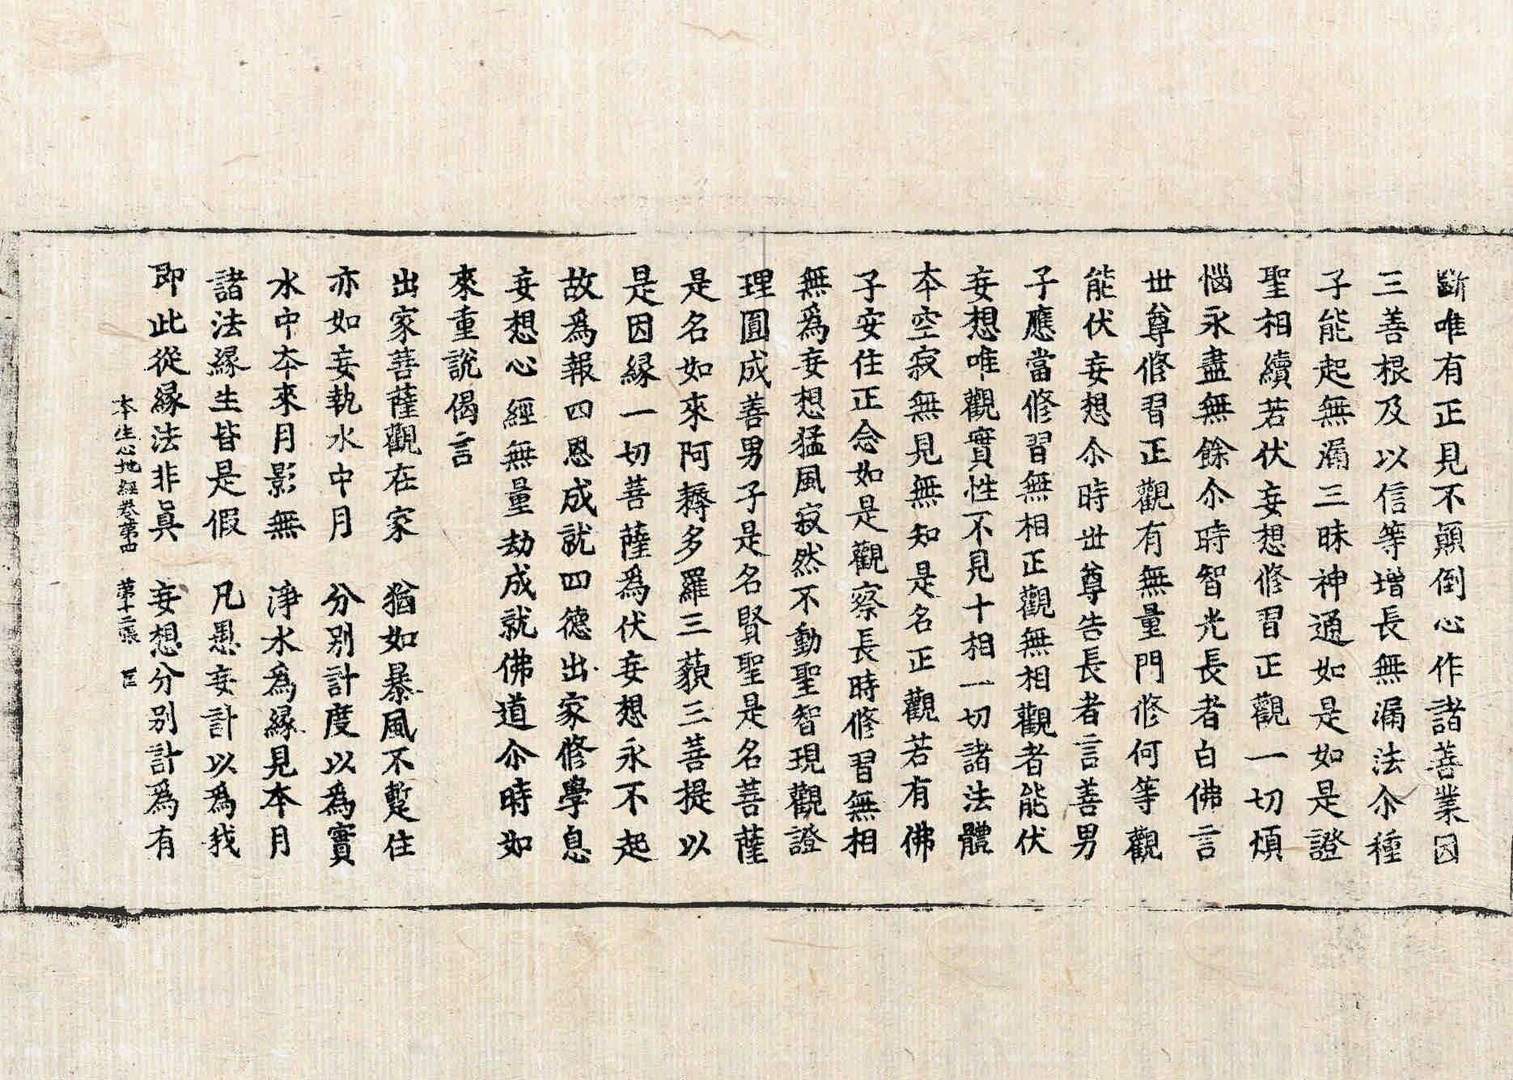 斷唯有正見不顛倒心作諸善業因
三善根及以信等增長無漏法尒種
子能起無漏三昧神通如是如是證
聖相續若伏妄想修習正觀一切煩
惱永盡無餘尒時智光長者白佛言
世尊修習正觀有無量門修何等觀
能伏妄想尒時世尊告長者言善男
子應當修習無相正觀無相觀者能伏
妄想唯觀實性不見十相一切諸法體
本空寂無見無知是名正觀若有佛
子安住正念如是觀察長時修習無相
無爲妄想猛風寂然不動聖智現觀證
理圓成善男子是名賢聖是名菩薩
是名如來阿耨多羅三藐三菩提以
是因緣一切菩薩爲伏妄想永不起
故爲報四恩成就四德出家修學息
妄想心經無量劫成就佛道尒時如
來重說偈言
出家菩薩觀在家 猶如暴風不蹔住
亦如妄執水中月 分別計度以爲實
水中本來月影無 淨水爲緣見本月
諸法緣生皆是假 凡愚妄計以爲我
即此從緣法非眞 妄想分別計爲有
本生心地經卷第四 第十二張